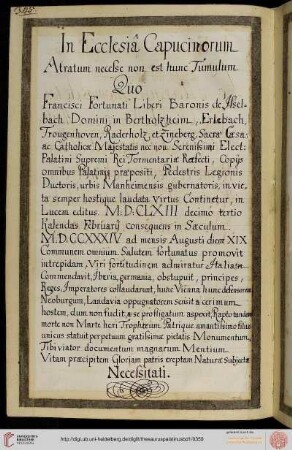 345.
In Ecclesiâ Capucinorum
Atratum necesse non est hunc Tumulum
Quo
Francisci Fortunati Liberi Baronis de Yssel-
bach Domini in Bertholzheim, Erlebach,
Trougenhoven, Raderholz, et Zineberg, Sacræ Cæsa-
ac Catholicæ Majestatis nec non Serenissimi Elect:
Palatini Supremi Rei Tormentariæ Præfecti, Copijs
omnibus Palatinis præpositi, Pedestris Legionis
Ductoris, urbis Manheimensis gubernatoris, in vic-
ta semper hostique laudata Virtus Continetur, in
Lucem editus. M.D.CLXIII decimo tertio
Kalendas Februarij consequens in Sæculum
M.D.CCXXXIV ad mensis Augusti diem XIX
Communem omnium Salutem fortunatus promovit
intrepidam, Viri fortitudinem admiratur Italia
Commendavit, Iberia, germania, obstupuit, principes,
Reges, Imperatores collaudarunt, hunc Vienna, hunc defensorem
Neoburgum, Landavia oppugnatorem sensit acerimum,
hostem, dum non fudit, a se profligatum aspexit, Rapto tandem
morte non Marte heri Trophæum Patrique amantissimo filius
unicus statuit perpetuum gratissimæ pietatis Monumentum,
Tibi viator documentum magnarum Mentium
Vitam præcipitem Gloriam patris ereptam Naturæ Subjectæ
Necessitati.
http://digi.ub.uni-heidelberg.de/diglit/thesauruspalatinus
UNIVERSITÄTS-
BIBLIOTHEK
HEIDELBERG